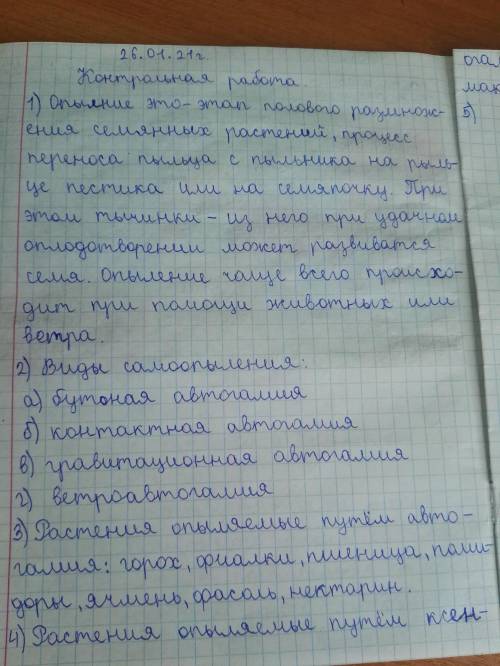 26.01.21г.
Контральная работа.
1) Опыление это-этап полового размнож-
ения семянных растений, процесс
переноса пыльца с пыльника на рыль-
це пестика или на семяпочку. При
этом тычинки - из него при удачном
оплодотворении может развиватся
семя. Опыление чаще всего происхо-
дит при помощи животных или
ветра.
2) Виды самоопыления:
а) бутоная автогамия
б) контактная автогамия
в) гравитационная автогамия
г) ветроавтогамия
3) Растения опыляемые путём авто-
гамия: горох, фиалки, пшеница, поми-
доры, ячмень, фасоль, нектарин.
4) Растения опыляемые путём ксен-
огам
мак
5)